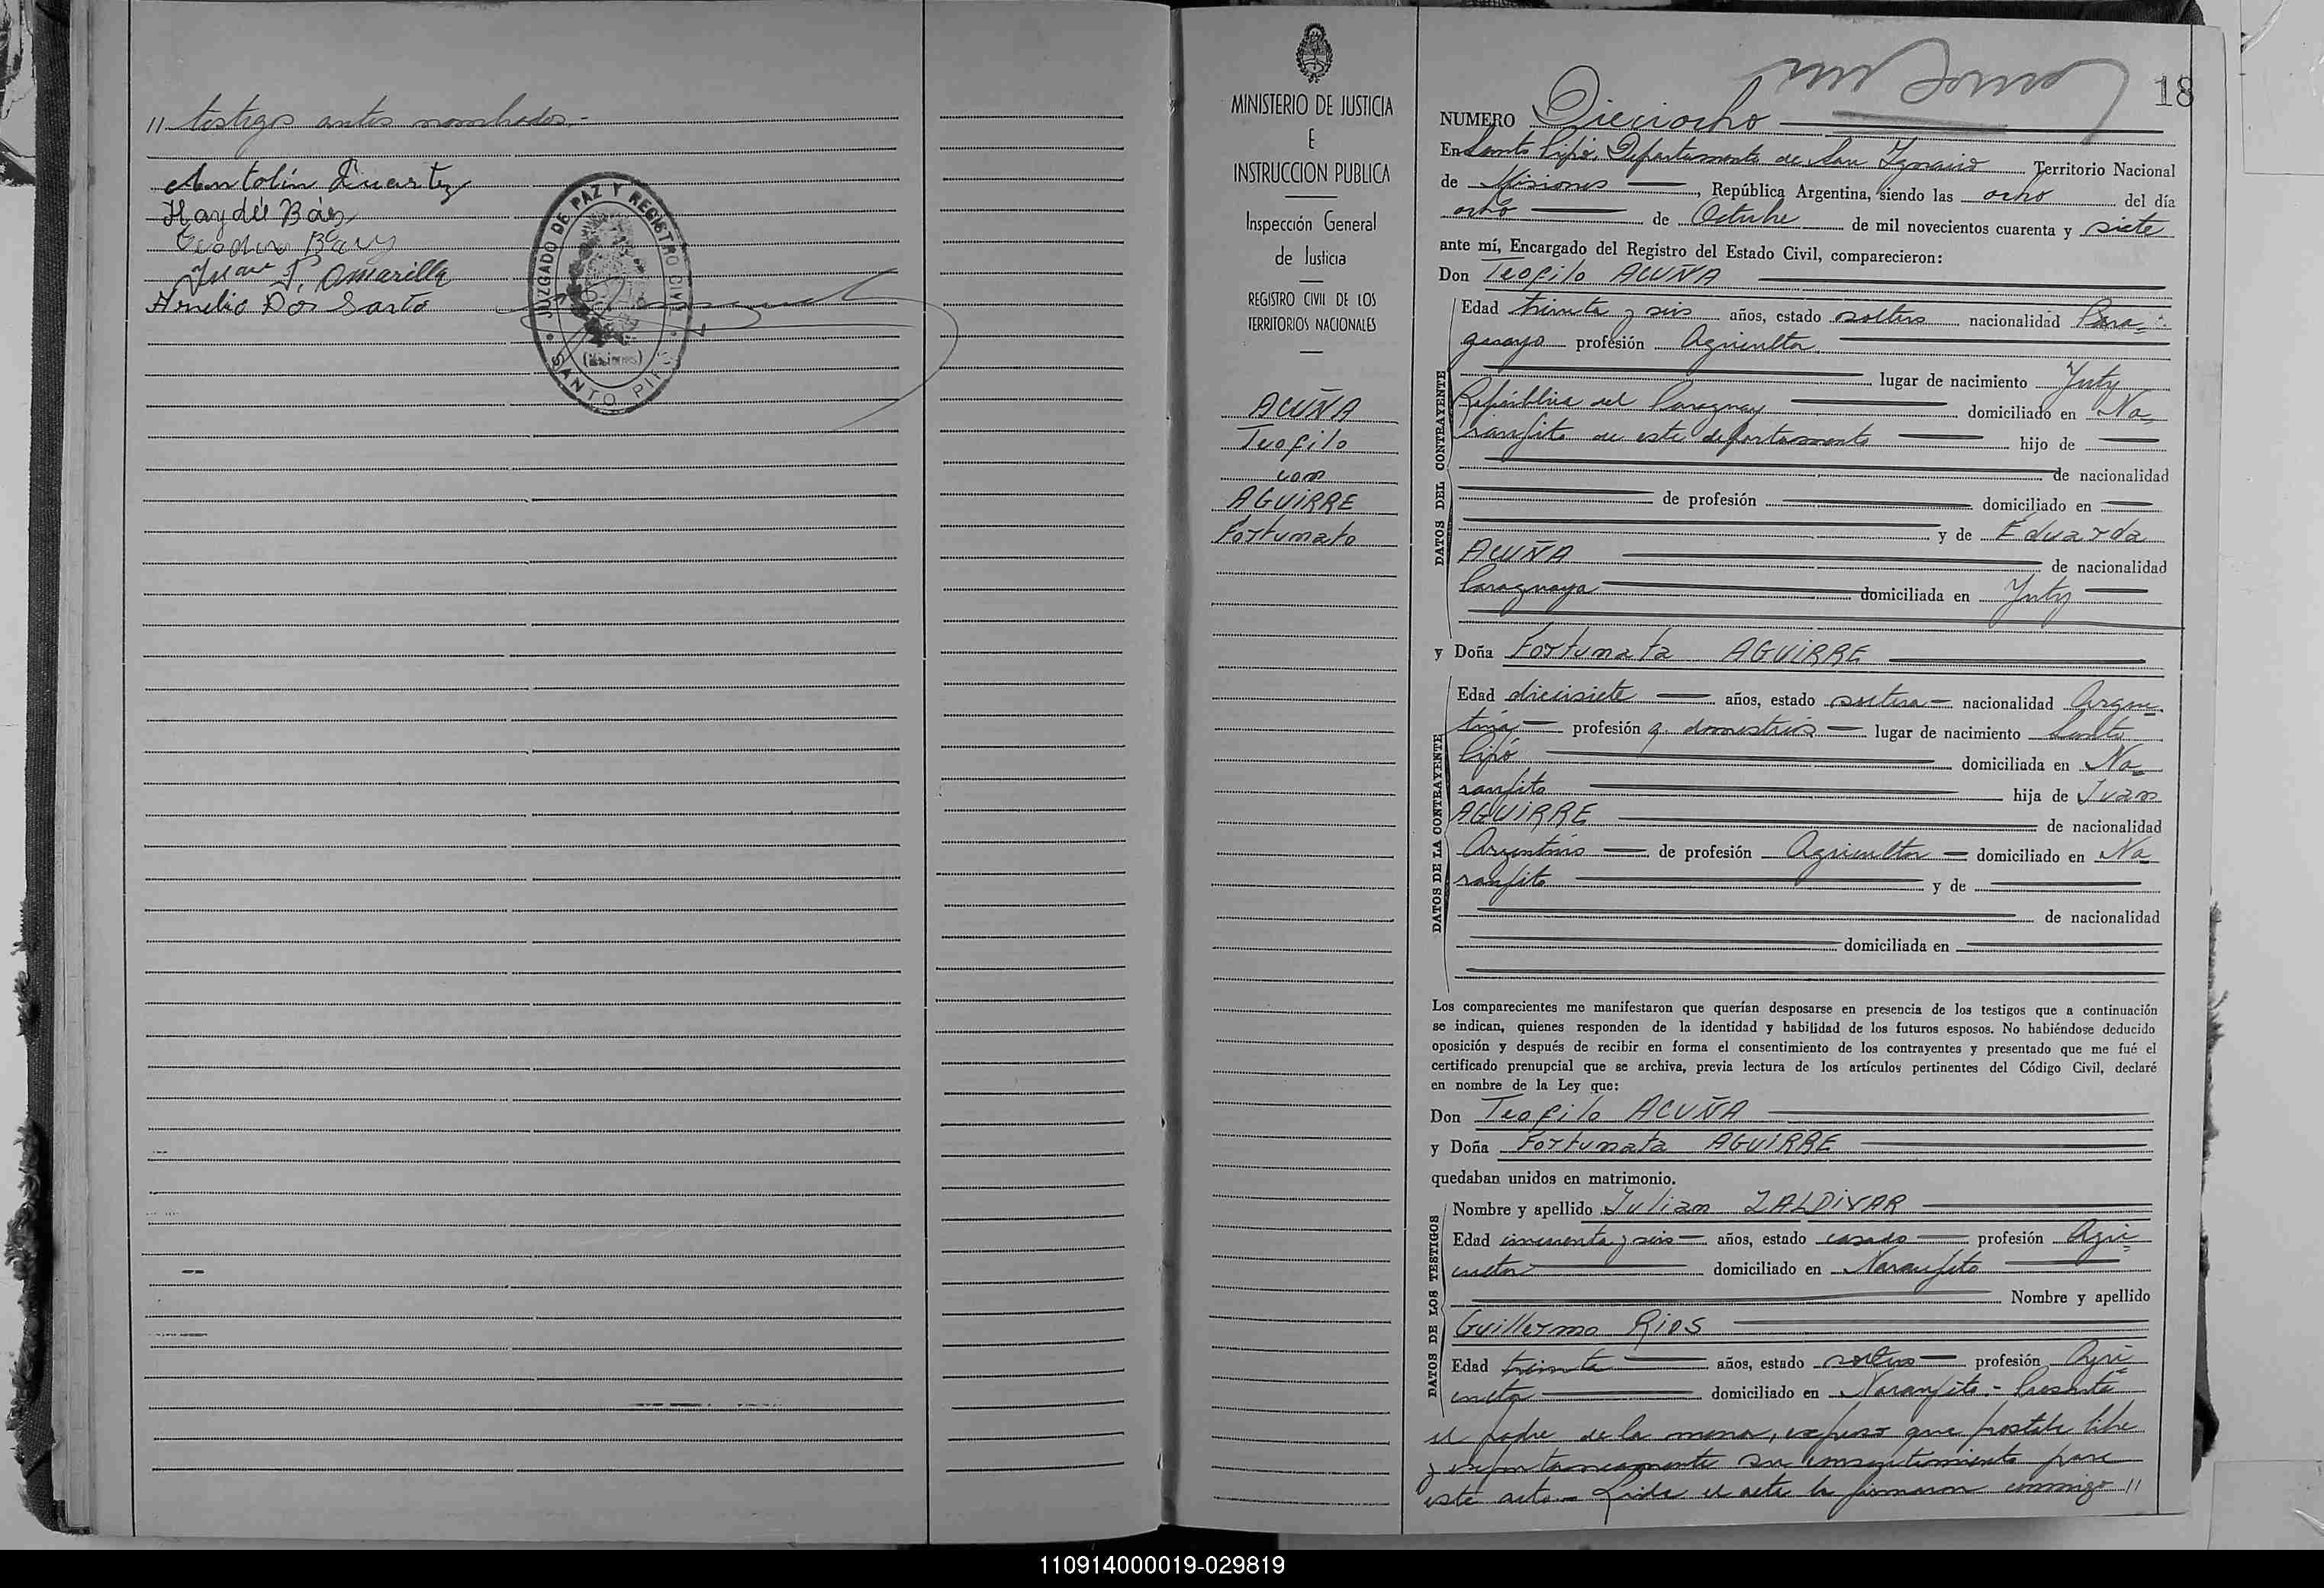 // testigos antes nombrados.-
Antolín Duarte
Haydée Báez
Teodoro Báez
Juan P. Amarilla
Arnelio Dos Santo
JUZGADO DE PAZ Y REGISTRO CIVIL
(Misiones)
SANTO PIPÓ
MINISTERIO DE JUSTICIA
E
INSTRUCCION PUBLICA
Inspección General
de Justicia
REGISTRO CIVIL DE LOS
TERRITORIOS NACIONALES
ACUÑA
Teofilo
con
AGUIRRE
Fortunata
18
NUMERO Dieciocho
En Santo Pipó, Departamento de San Ignacio Territorio Nacional
de Misiones, República Argentina, siendo las ocho del día
ocho de Octubre de mil novecientos cuarenta y siete
ante mí, Encargado del Registro del Estado Civil, comparecieron:
Don Teofilo ACUÑA
DATOS DEL CONTRAYENTE
Edad treinta y seis años, estado soltero nacionalidad Para-
guayo profesión Agricultor
lugar de nacimiento Yuty
República del Paraguay domiciliado en Na-
ranjito de este departamento hijo de
de nacionalidad
de profesión domiciliado en
y de Eduarda
ACUÑA de nacionalidad
Paraguaya domiciliada en Yuty
y Doña Fortunata AGUIRRE
DATOS DE LA CONTRAYENTE
Edad diecisiete años, estado soltera nacionalidad Argen-
tina profesión q. domésticos lugar de nacimiento Santo
Pipó domiciliada en Na-
ranjito hija de Juan
AGUIRRE de nacionalidad
Argentino de profesión Agricultor domiciliado en Na-
ranjito y de
de nacionalidad
domiciliada en
Los comparecientes me manifestaron que querían desposarse en presencia de los testigos que a continuación
se indican, quienes responden de la identidad y habilidad de los futuros esposos. No habiéndose deducido
oposición y después de recibir en forma el consentimiento de los contrayentes y presentado que me fué el
certificado prenupcial que se archiva, previa lectura de los artículos pertinentes del Código Civil, declaré
en nombre de la Ley que:
Don Teofilo ACUÑA
y Doña Fortunata AGUIRRE
quedaban unidos en matrimonio.
DATOS DE LOS TESTIGOS
Nombre y apellido Julian ZALDIVAR
Edad cincuenta y seis años, estado casado profesión Agri-
cultor domiciliado en Naranjito
Nombre y apellido
Guillermo RIOS
Edad treinta años, estado soltero profesión Agri-
cultor domiciliado en Naranjito.- Presente
el padre de la menor, expuso que prestaba libre
y espontaneamente su consentimiento para
este acto.- Leída el acta la firmaron conmigo //
110914000019-029819